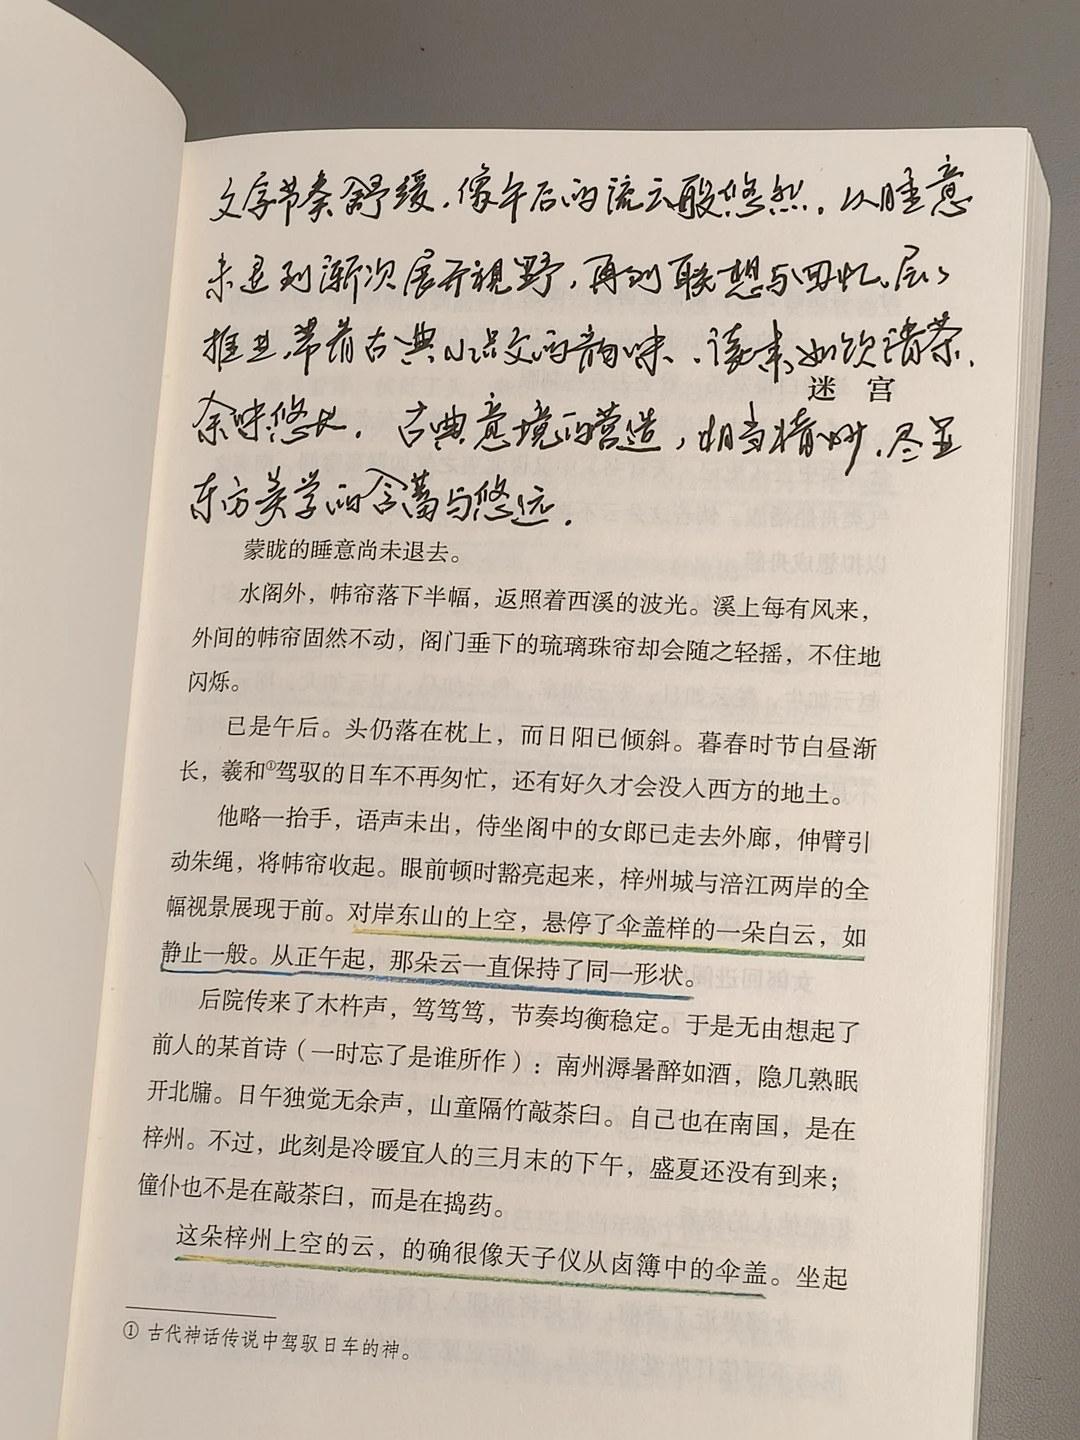 文字节奏舒缓，像午后的流云般悠然，以睡意
未退到渐次展开视野，再到联想与回忆，层々
推进，带着古典小品文的韵味，读来如饮清茶，
迷宫
余味悠长。古典意境的营造，相当精妙，尽显
东方美学的含蓄与悠远。
蒙眬的睡意尚未退去。
水阁外，帏帘落下半幅，返照着西溪的波光。溪上每有风来，
外间的帏帘固然不动，阁门垂下的琉璃珠帘却会随之轻摇，不住地
闪烁。
已是午后。头仍落在枕上，而日阳已倾斜。暮春时节白昼渐
长，羲和①驾驭的日车不再匆忙，还有好久才会没入西方的地土。
他略一抬手，语声未出，侍坐阁中的女郎已走去外廊，伸臂引
动朱绳，将帏帘收起。眼前顿时豁亮起来，梓州城与涪江两岸的全
幅视景展现于前。对岸东山的上空，悬停了伞盖样的一朵白云，如
静止一般。从正午起，那朵云一直保持了同一形状。
后院传来了木杵声，笃笃笃，节奏均衡稳定。于是无由想起了
前人的某首诗（一时忘了是谁所作）：南州溽暑醉如酒，隐几熟眠
开北牖。日午独觉无余声，山童隔竹敲茶臼。自己也在南国，是在
梓州。不过，此刻是冷暖宜人的三月末的下午，盛夏还没有到来；
僮仆也不是在敲茶臼，而是在捣药。
这朵梓州上空的云，的确很像天子仪从卤簿中的伞盖。坐起
① 古代神话传说中驾驭日车的神。